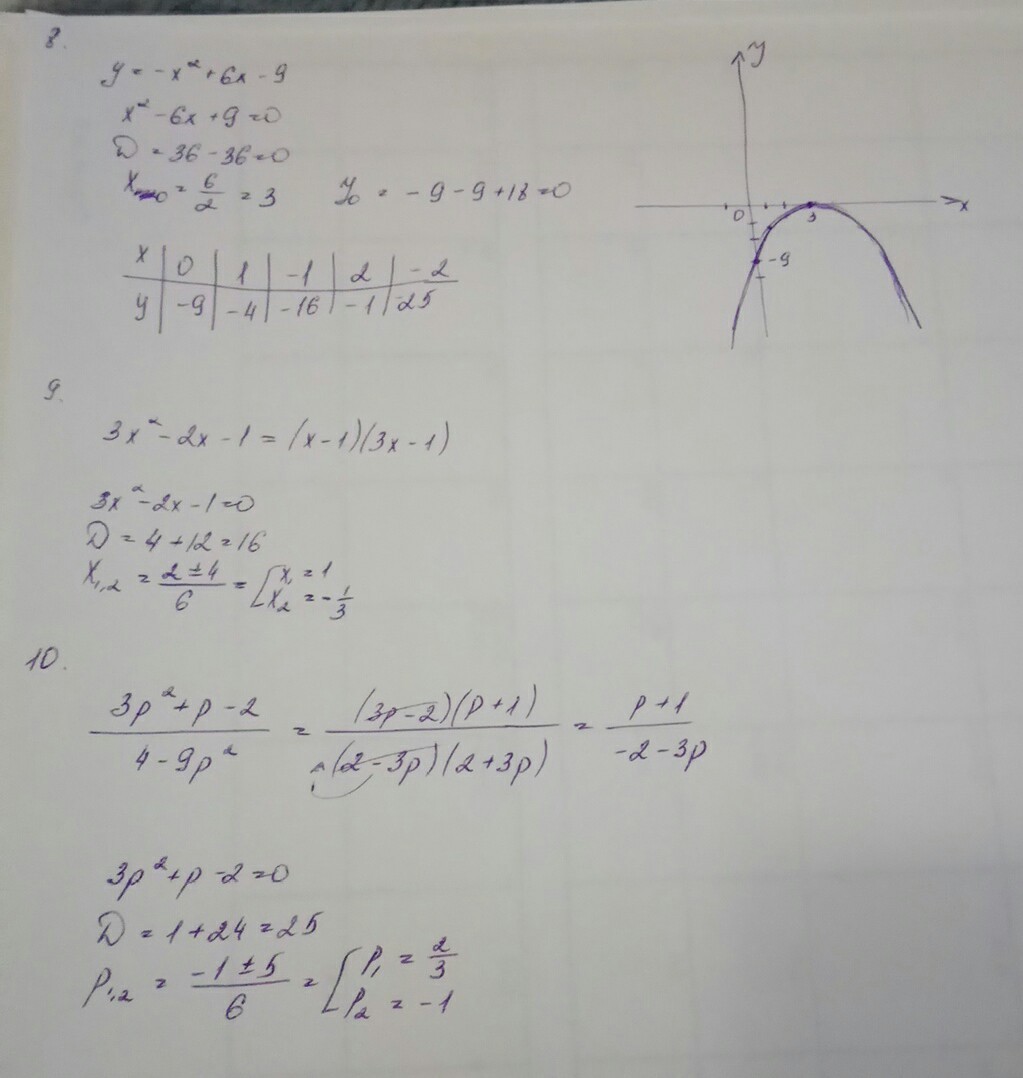 8.
y = -x² + 6x - 9
x² - 6x + 9 = 0
D = 36 - 36 = 0
x₀ = 6/2 = 3 y₀ = -9 - 9 + 18 = 0
x | 0 | 1 | -1 | 2 | -2
y | -9 | -4 | -16 | -1 | -25
y
x
0
3
-9
9.
3x² - 2x - 1 = (x-1)(3x-1)
3x² - 2x - 1 = 0
D = 4 + 12 = 16
x₁,₂ = (2 ± 4)/6 = [x₁ = 1
x₂ = -1/3
10.
(3p² + p - 2)/(4 - 9p²) = ((3p-2)(p+1))/((2-3p)(2+3p)) = (p+1)/(-2-3p)
3p² + p - 2 = 0
D = 1 + 24 = 25
p₁,₂ = (-1 ± 5)/6 = [p₁ = 2/3
p₂ = -1